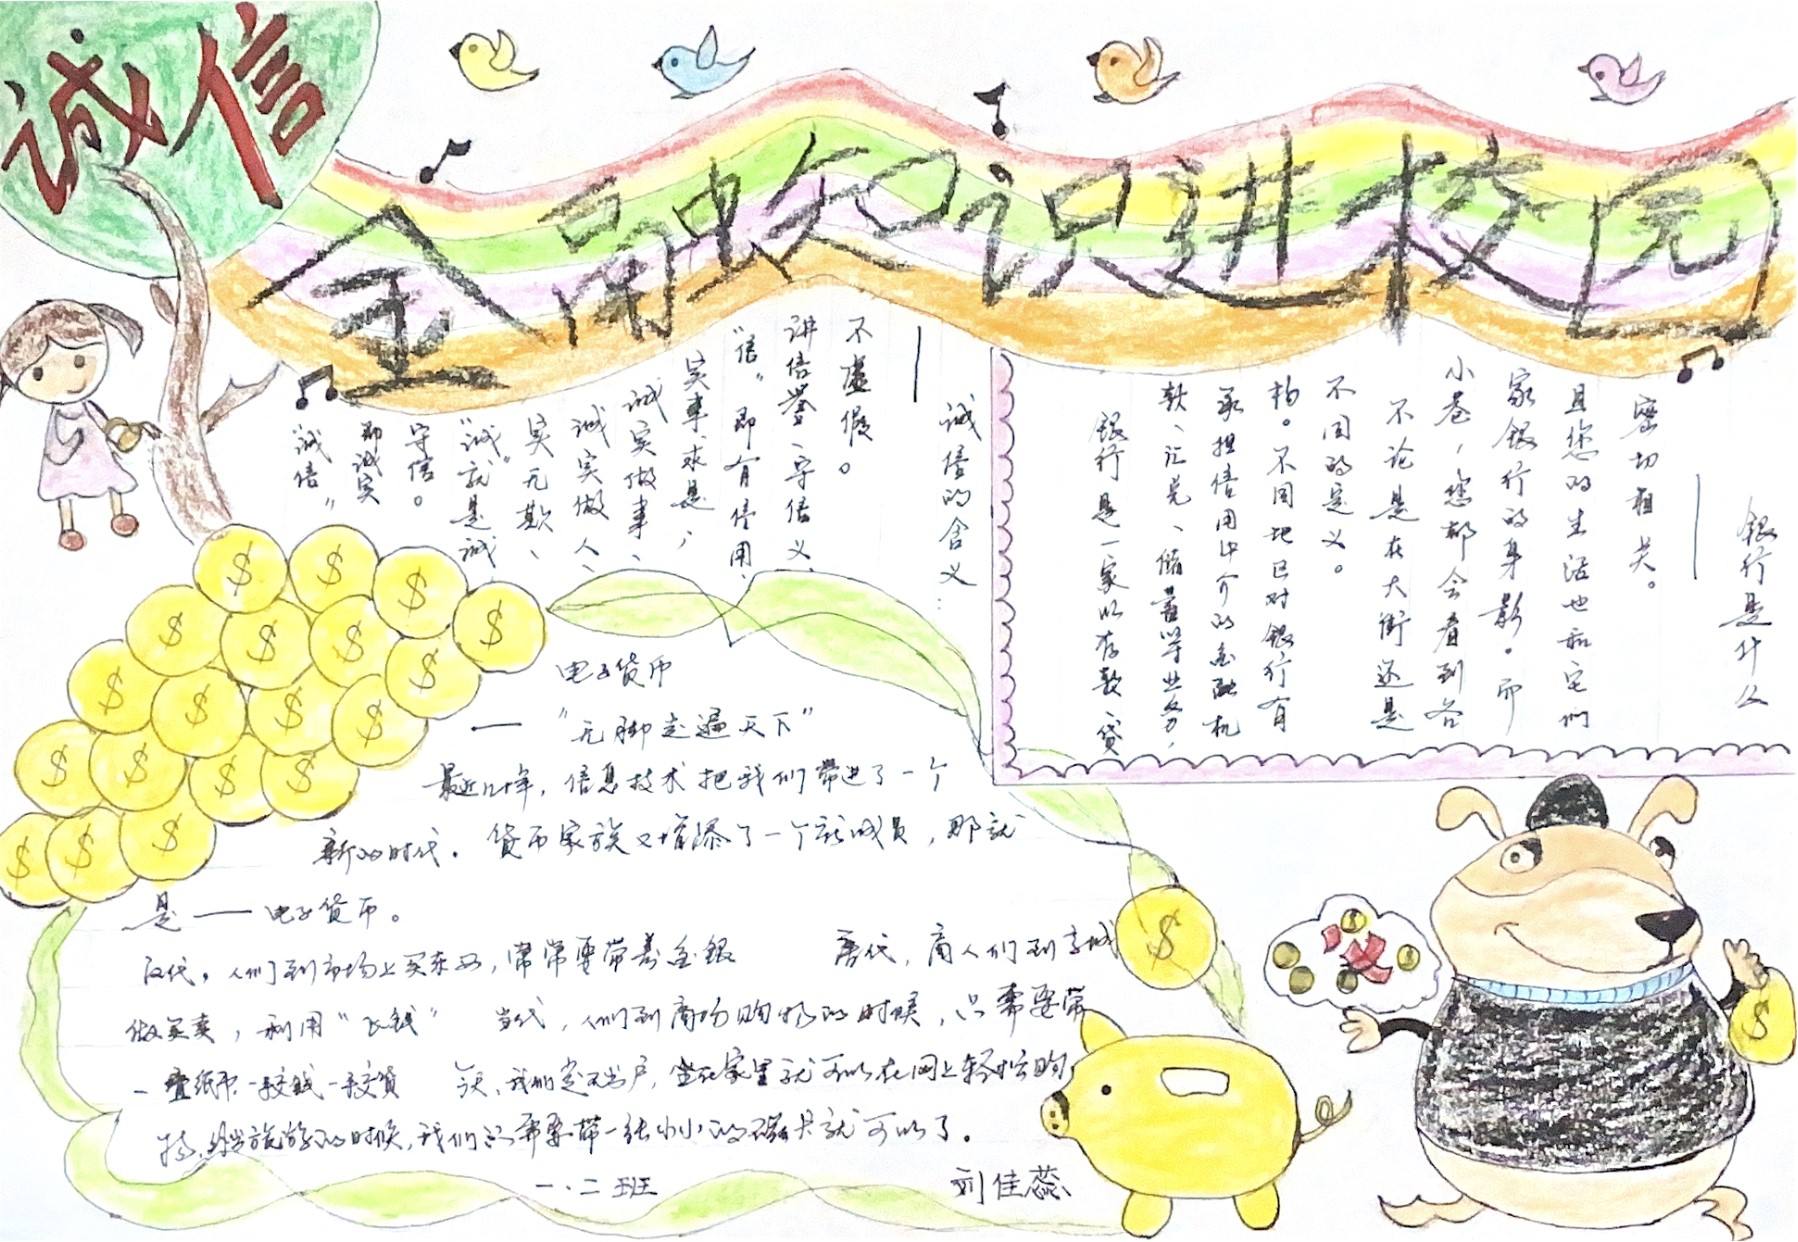 诚信
金融知识进校园
诚信的含义…
——
“诚信”
即诚实
守信。
“诚”就是诚
实无欺、
诚实做人、
诚实做事、
实事求是；
“信”即有信用、
讲信誉、守信义、
不虚假。
银行是什么
——
银行是一家以存款、贷
款、汇兑、储蓄等业务，
承担信用中介的金融机
构。不同地区对银行有
不同的定义。
不论是在大街还是
小巷，您都会看到各
家银行的身影。而
且您的生活也和它们
密切相关。
电子货币
——“无脚走遍天下”
最近几十年，信息技术把我们带进了一个
新的时代。货币家族又增添了一个新成员，那就
是——电子货币。
汉代，人们到市场上买东西，常常要带着金银 唐代，商人们到京城
做买卖，利用“飞钱” 当代，人们到商场购物的时候，只需要带
一叠纸币 交钱一手交货 今天，我们足不出户，坐在家里就可以在网上轻松购
物，外出旅游的时候，我们只需要带一张小小的磁卡就可以了。
一.二班 刘佳蕊